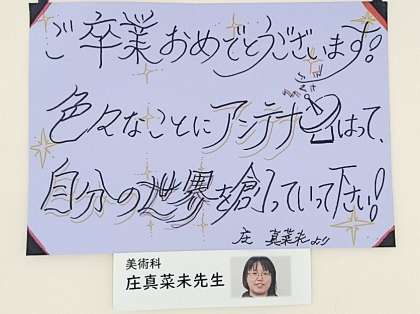 ご卒業おめでとうございます。
色々なことにアンテナはって、
自分の世界を創っていって下さい!
庄 真菜未より
美術科
庄真菜未先生